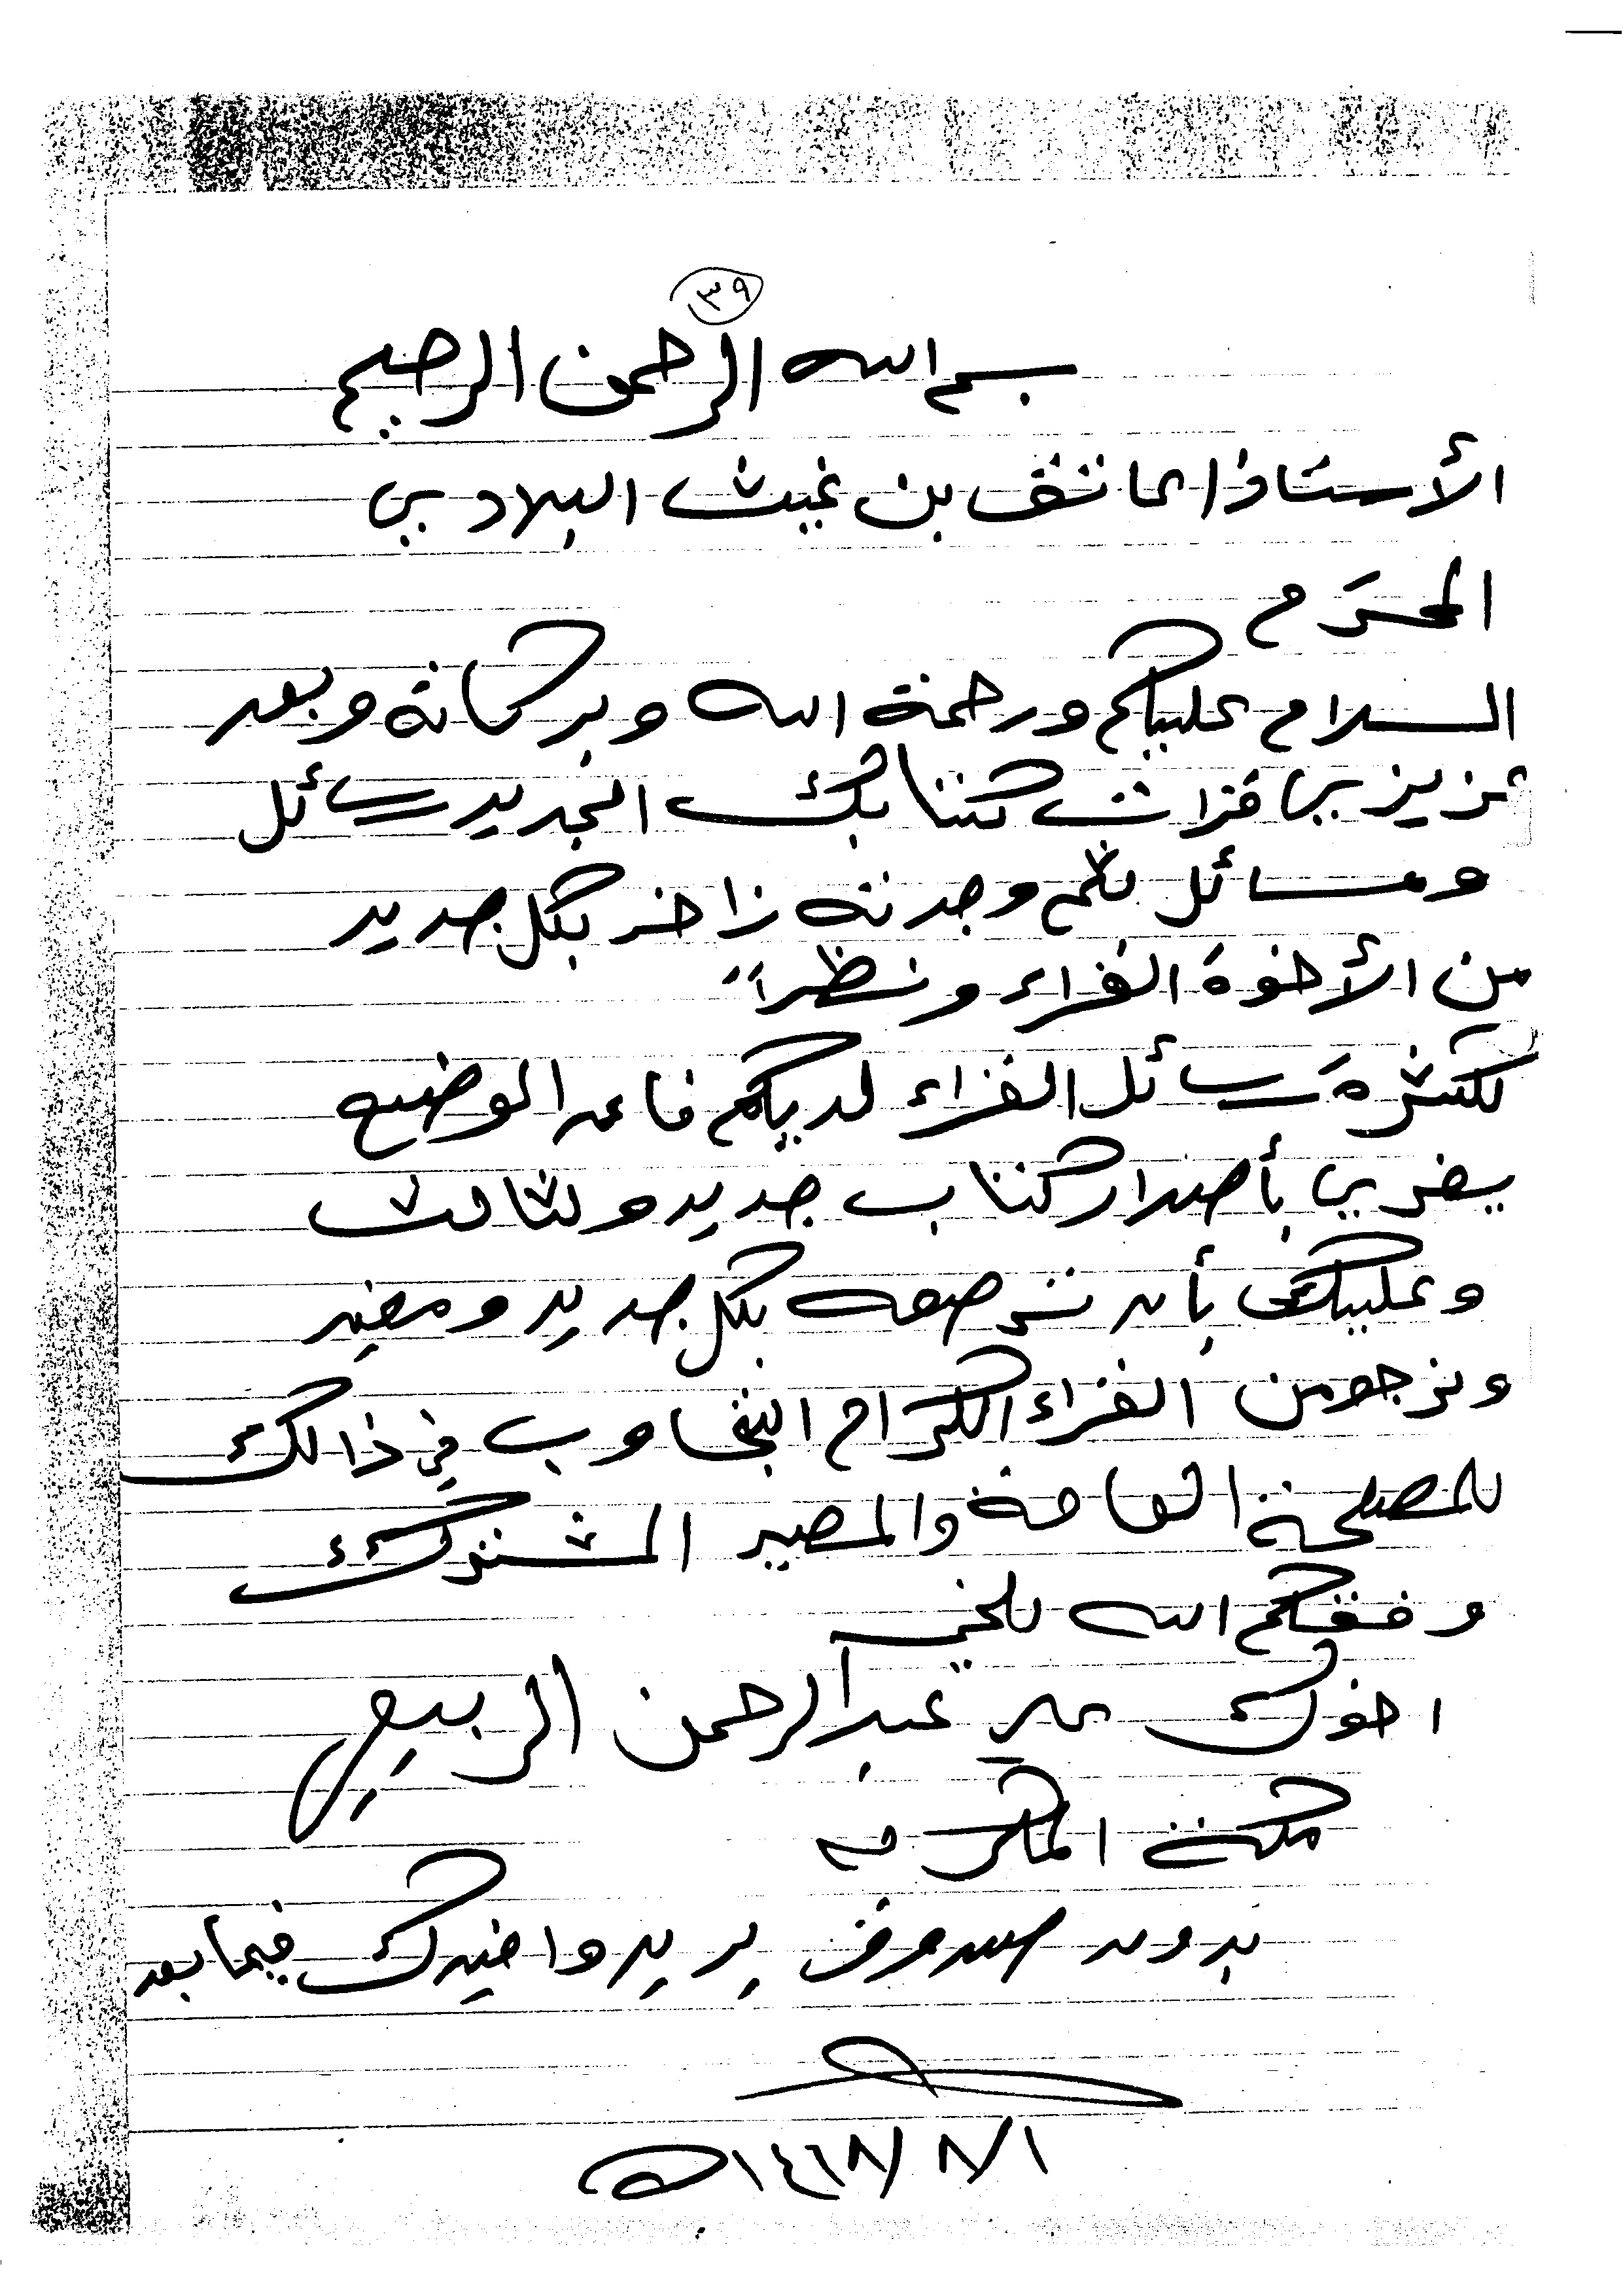 ٣٩
بسم الله الرحمن الرحيم
الأستاذ / عاتق بن غيث البلادي
المحترم
السلام عليكم ورحمة الله وبركاته وبعد
عزيزي قرات كتابك الجديد رسائل
ومسائل بكم وجدته زاخر بكل جديد
من الأخوة القراء ونظراً
لكثرة رسائل القراء لديكم فان الوضع
يغري بأصدار كتاب جديد وثالث
وعليك بأن ترصعه بكل جديد ومفيد
ونرجو من القراء الكرام التجاوب في ذالك
للمصلحة العامة والمصير المشترك
وفقكم الله للخير
اخوك علي عبدالرحمن الربيعي
مكة المكرمه
بدون صندوق بريد وافيدك فيما بعد
١/ ٨/ ١٤١٨ه